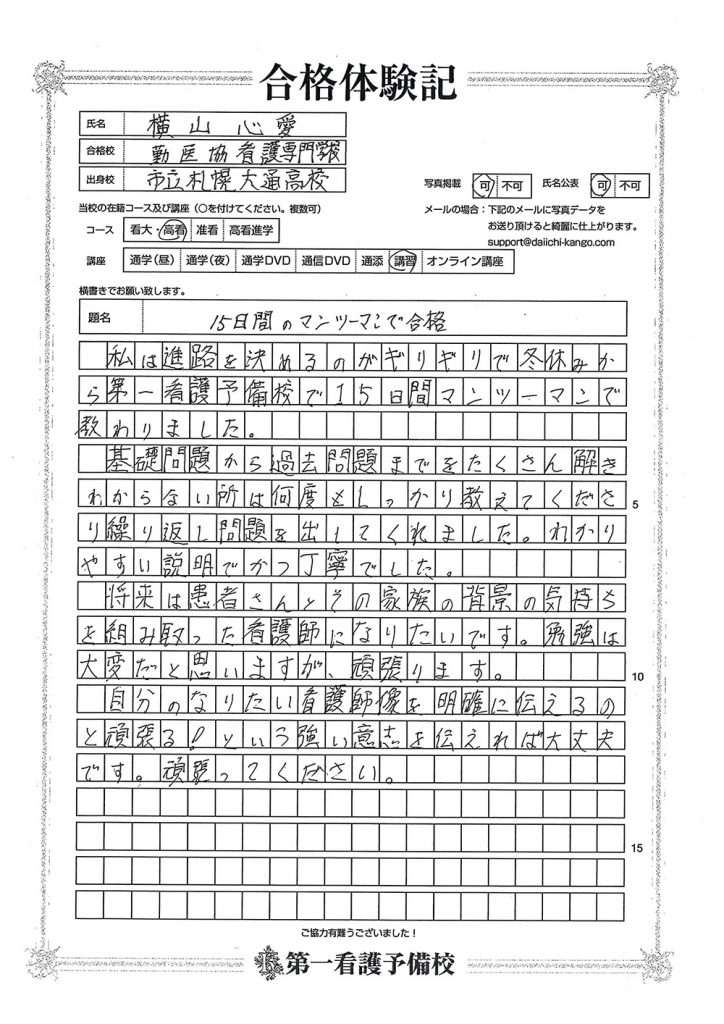 合格体験記
氏名 横山心愛
合格校 勤医協看護専門学校
出身校 市立札幌大通高校
写真掲載 可 不可 氏名公表 可 不可
当校の在籍コース及び講座（○を付けてください。複数可）
メールの場合：下記のメールに写真データを
お送り頂けると綺麗に仕上がります。
support@daiichi-kango.com
コース 看大・高看 准看 高看進学
講座 通学（昼） 通学（夜） 通学DVD 通信DVD 通添 講習 オンライン講座
横書きでお願い致します。
題名 15日間のマンツーマンで合格
私は進路を決めるのがギリギリで冬休みか
ら第一看護予備校で15日間マンツーマンで
教わりました。
基礎問題から過去問題までをたくさん解き
わからない所は何度もしっかり教えてくださ
5
り繰り返し問題を出してくれました。わかり
やすい説明でかつ丁寧でした。
将来は患者さんとその家族の背景の気持ち
を組み取った看護師になりたいです。勉強は
大変だと思いますが、頑張ります。
10
自分のなりたい看護師像を明確に伝えるの
と頑張る！という強い意志を伝えれば大丈夫
です。頑張ってください。
15
ご協力有難うございました！
第一看護予備校